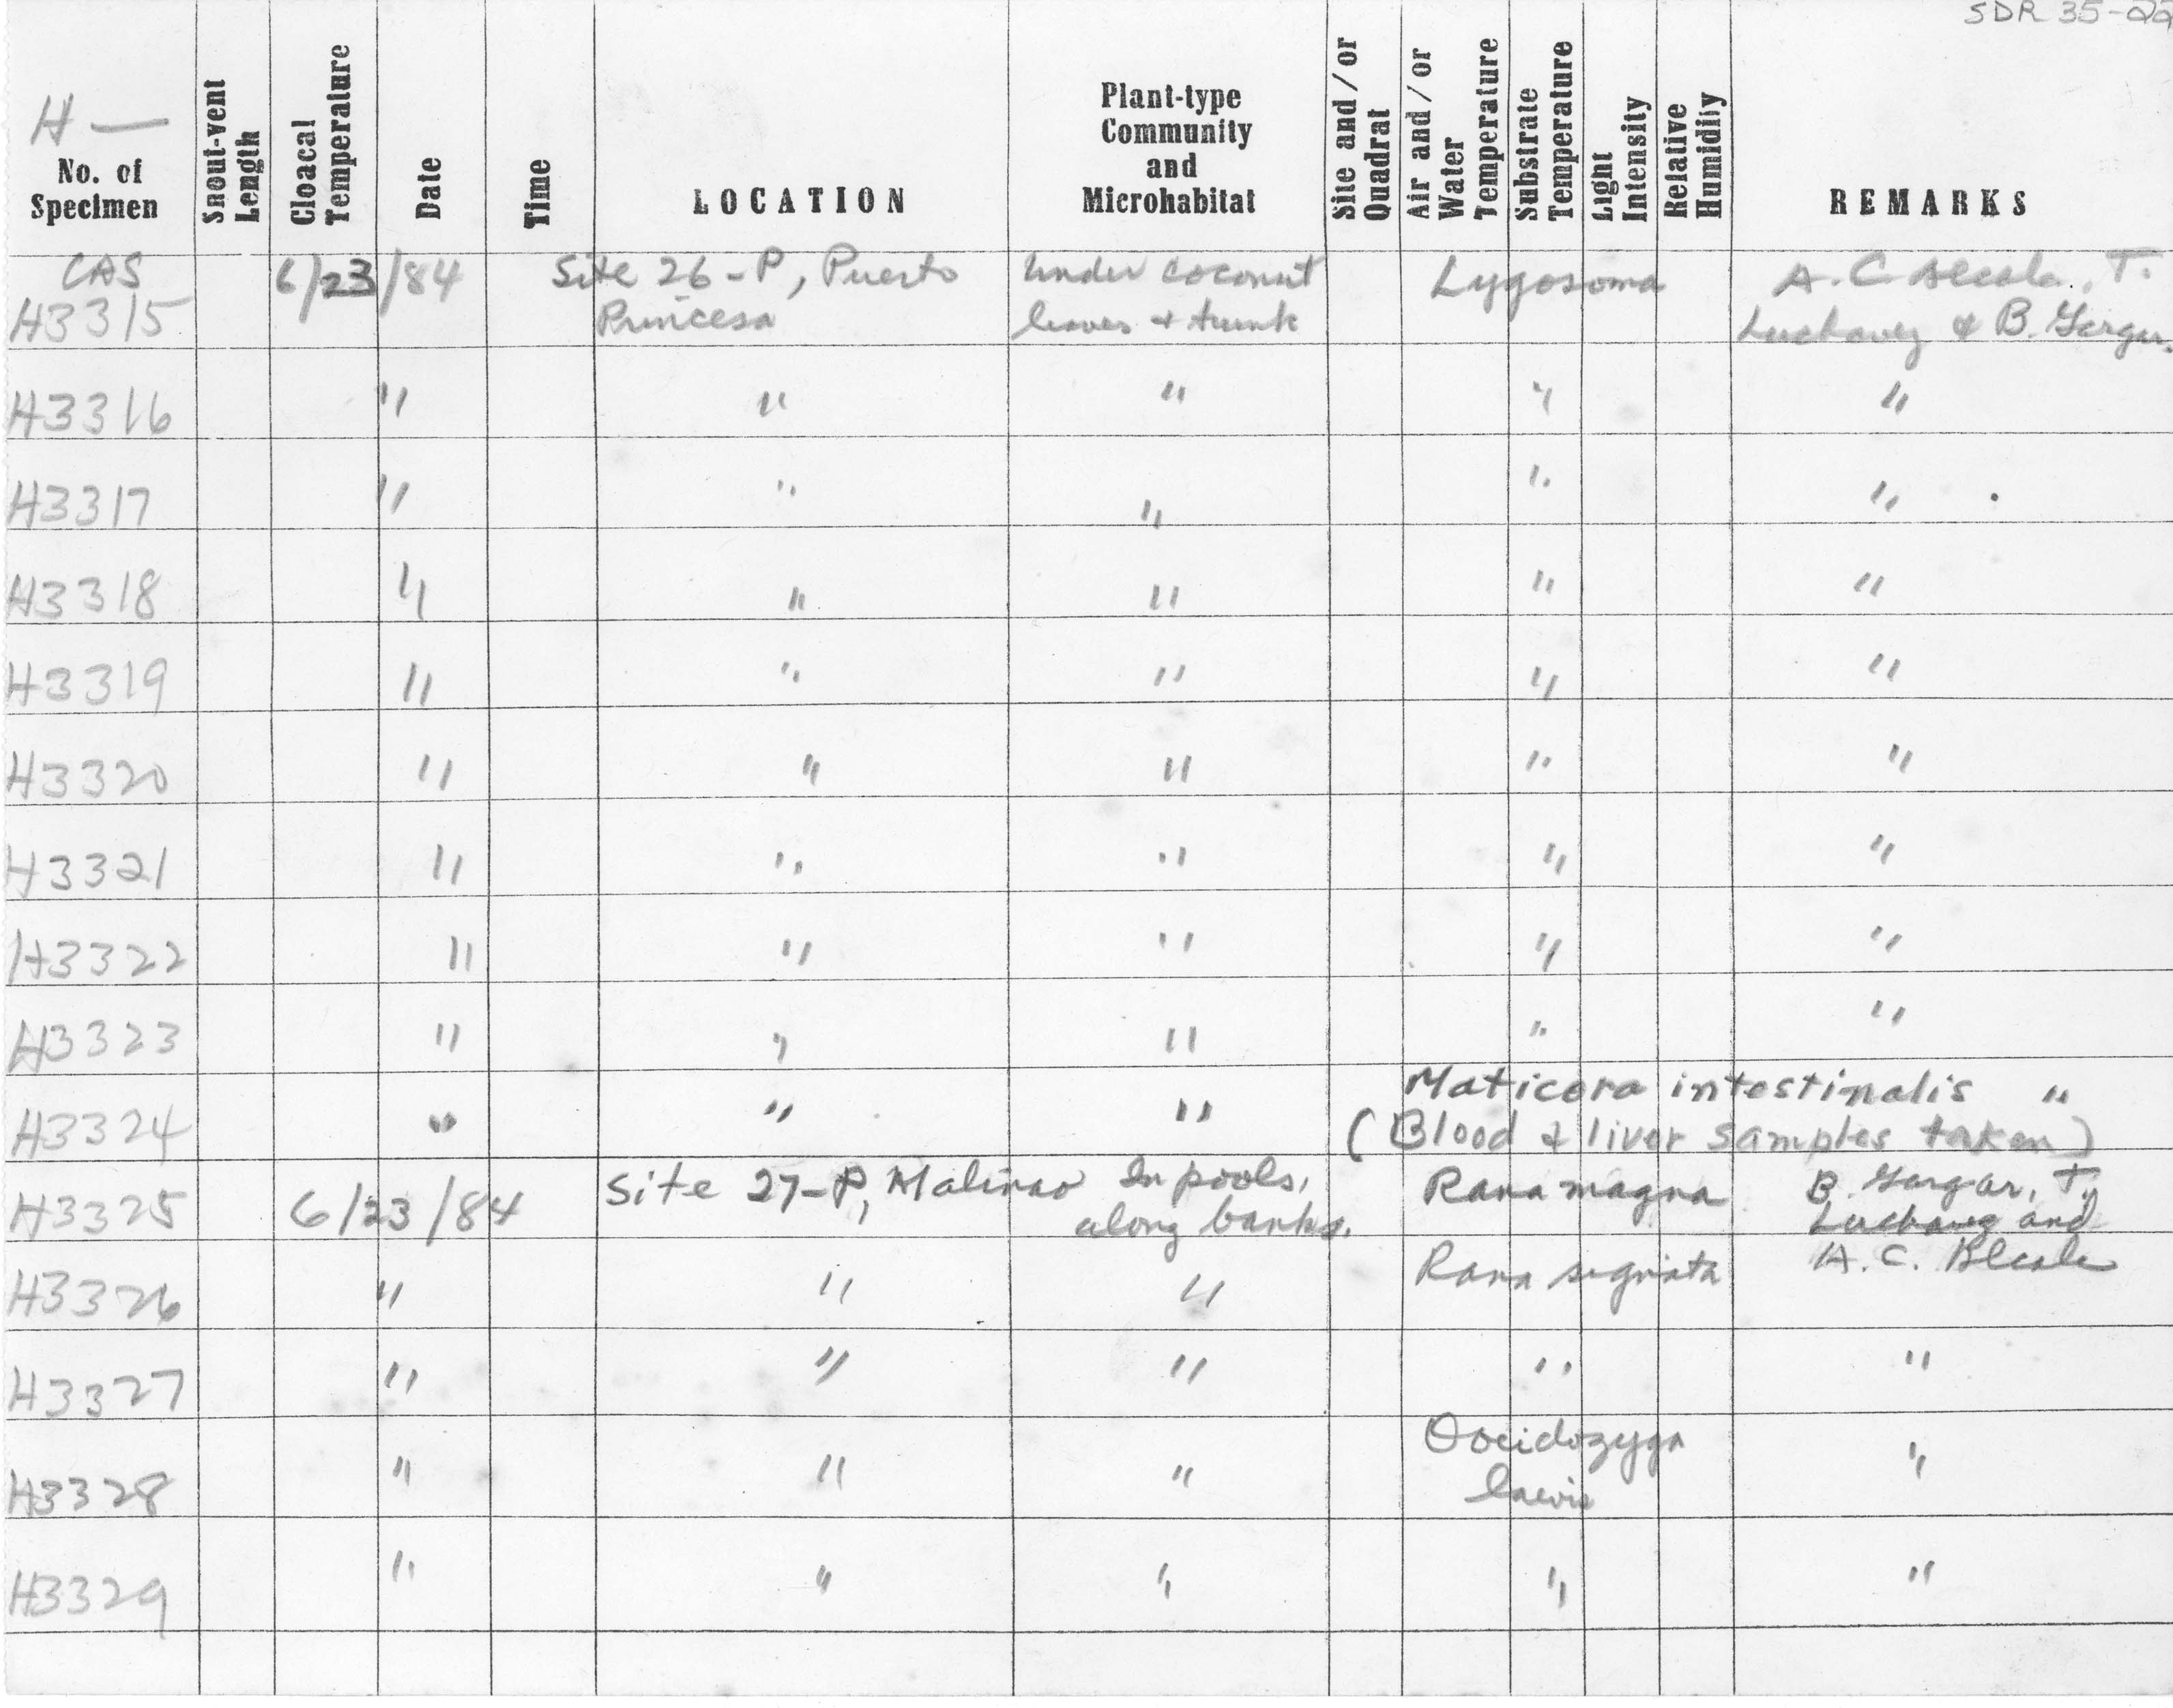 SDR 35-22
H —
No. of
Specimen
Snout-vent
Length
Cloacal
Temperature
Date
Time
LOCATION
Plant-type
Community
and
Microhabitat
Site and/or
Quadrat
Air and/or
Water
Temperature
Substrate
Temperature
Light
Intensity
Relative
Humidity
REMARKS
CAS 6/23/84 Site 26-P, Puerto under coconut Lygosoma A. C Alcala, T.
H3315 Princesa leaves & trunk Luchavez & B. Gargar.
H3316 " " " " "
H3317 " " " " "
H3318 " " " " "
H3319 " " " " "
H3320 " " " " "
H3321 " " " " "
H3322 " " " " "
H3323 " " " " "
Maticora intestinalis "
H3324 " " " (Blood & liver samples taken)
H3325 6/23/84 Site 27-P, Malinao In pools, Rana magna B. Gargar, T.
along banks. Luchavez and
H3326 " " " Rana signata A. C. Alcala
H3327 " " " " "
H3328 " " " Ooeidozyga "
laevis
H3329 " " " " "